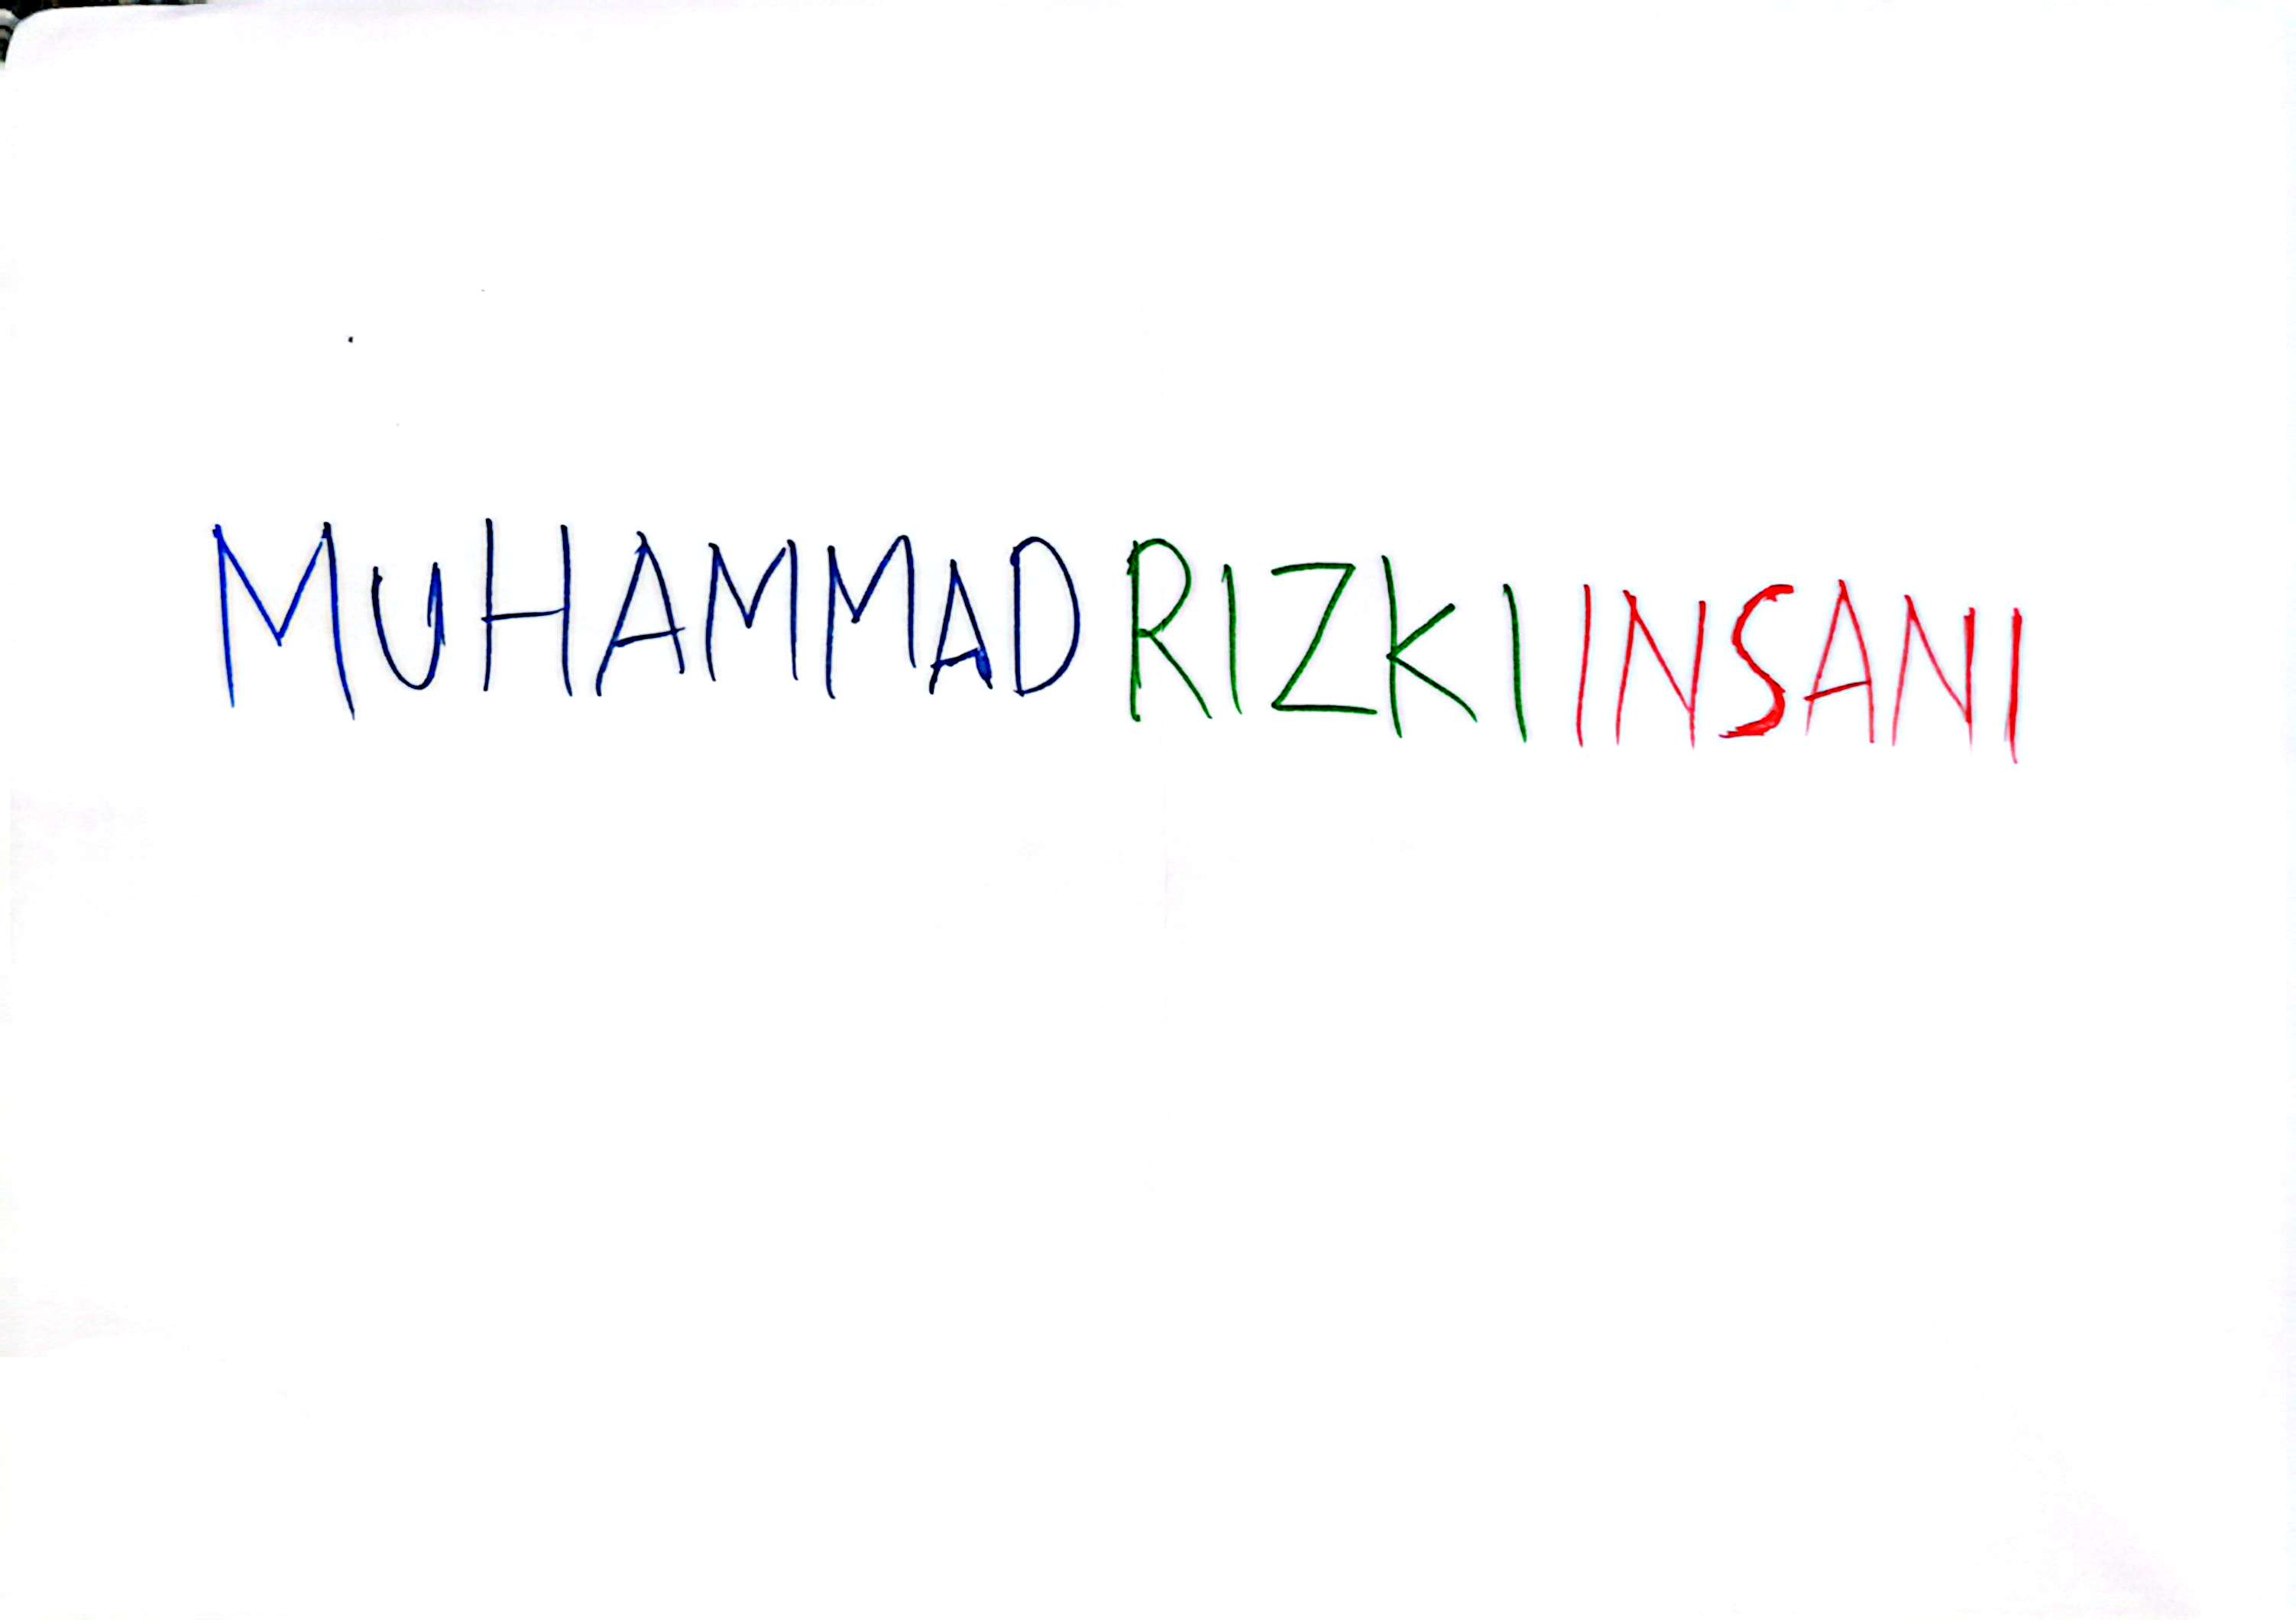 MUHAMMAD RIZKI INSANI